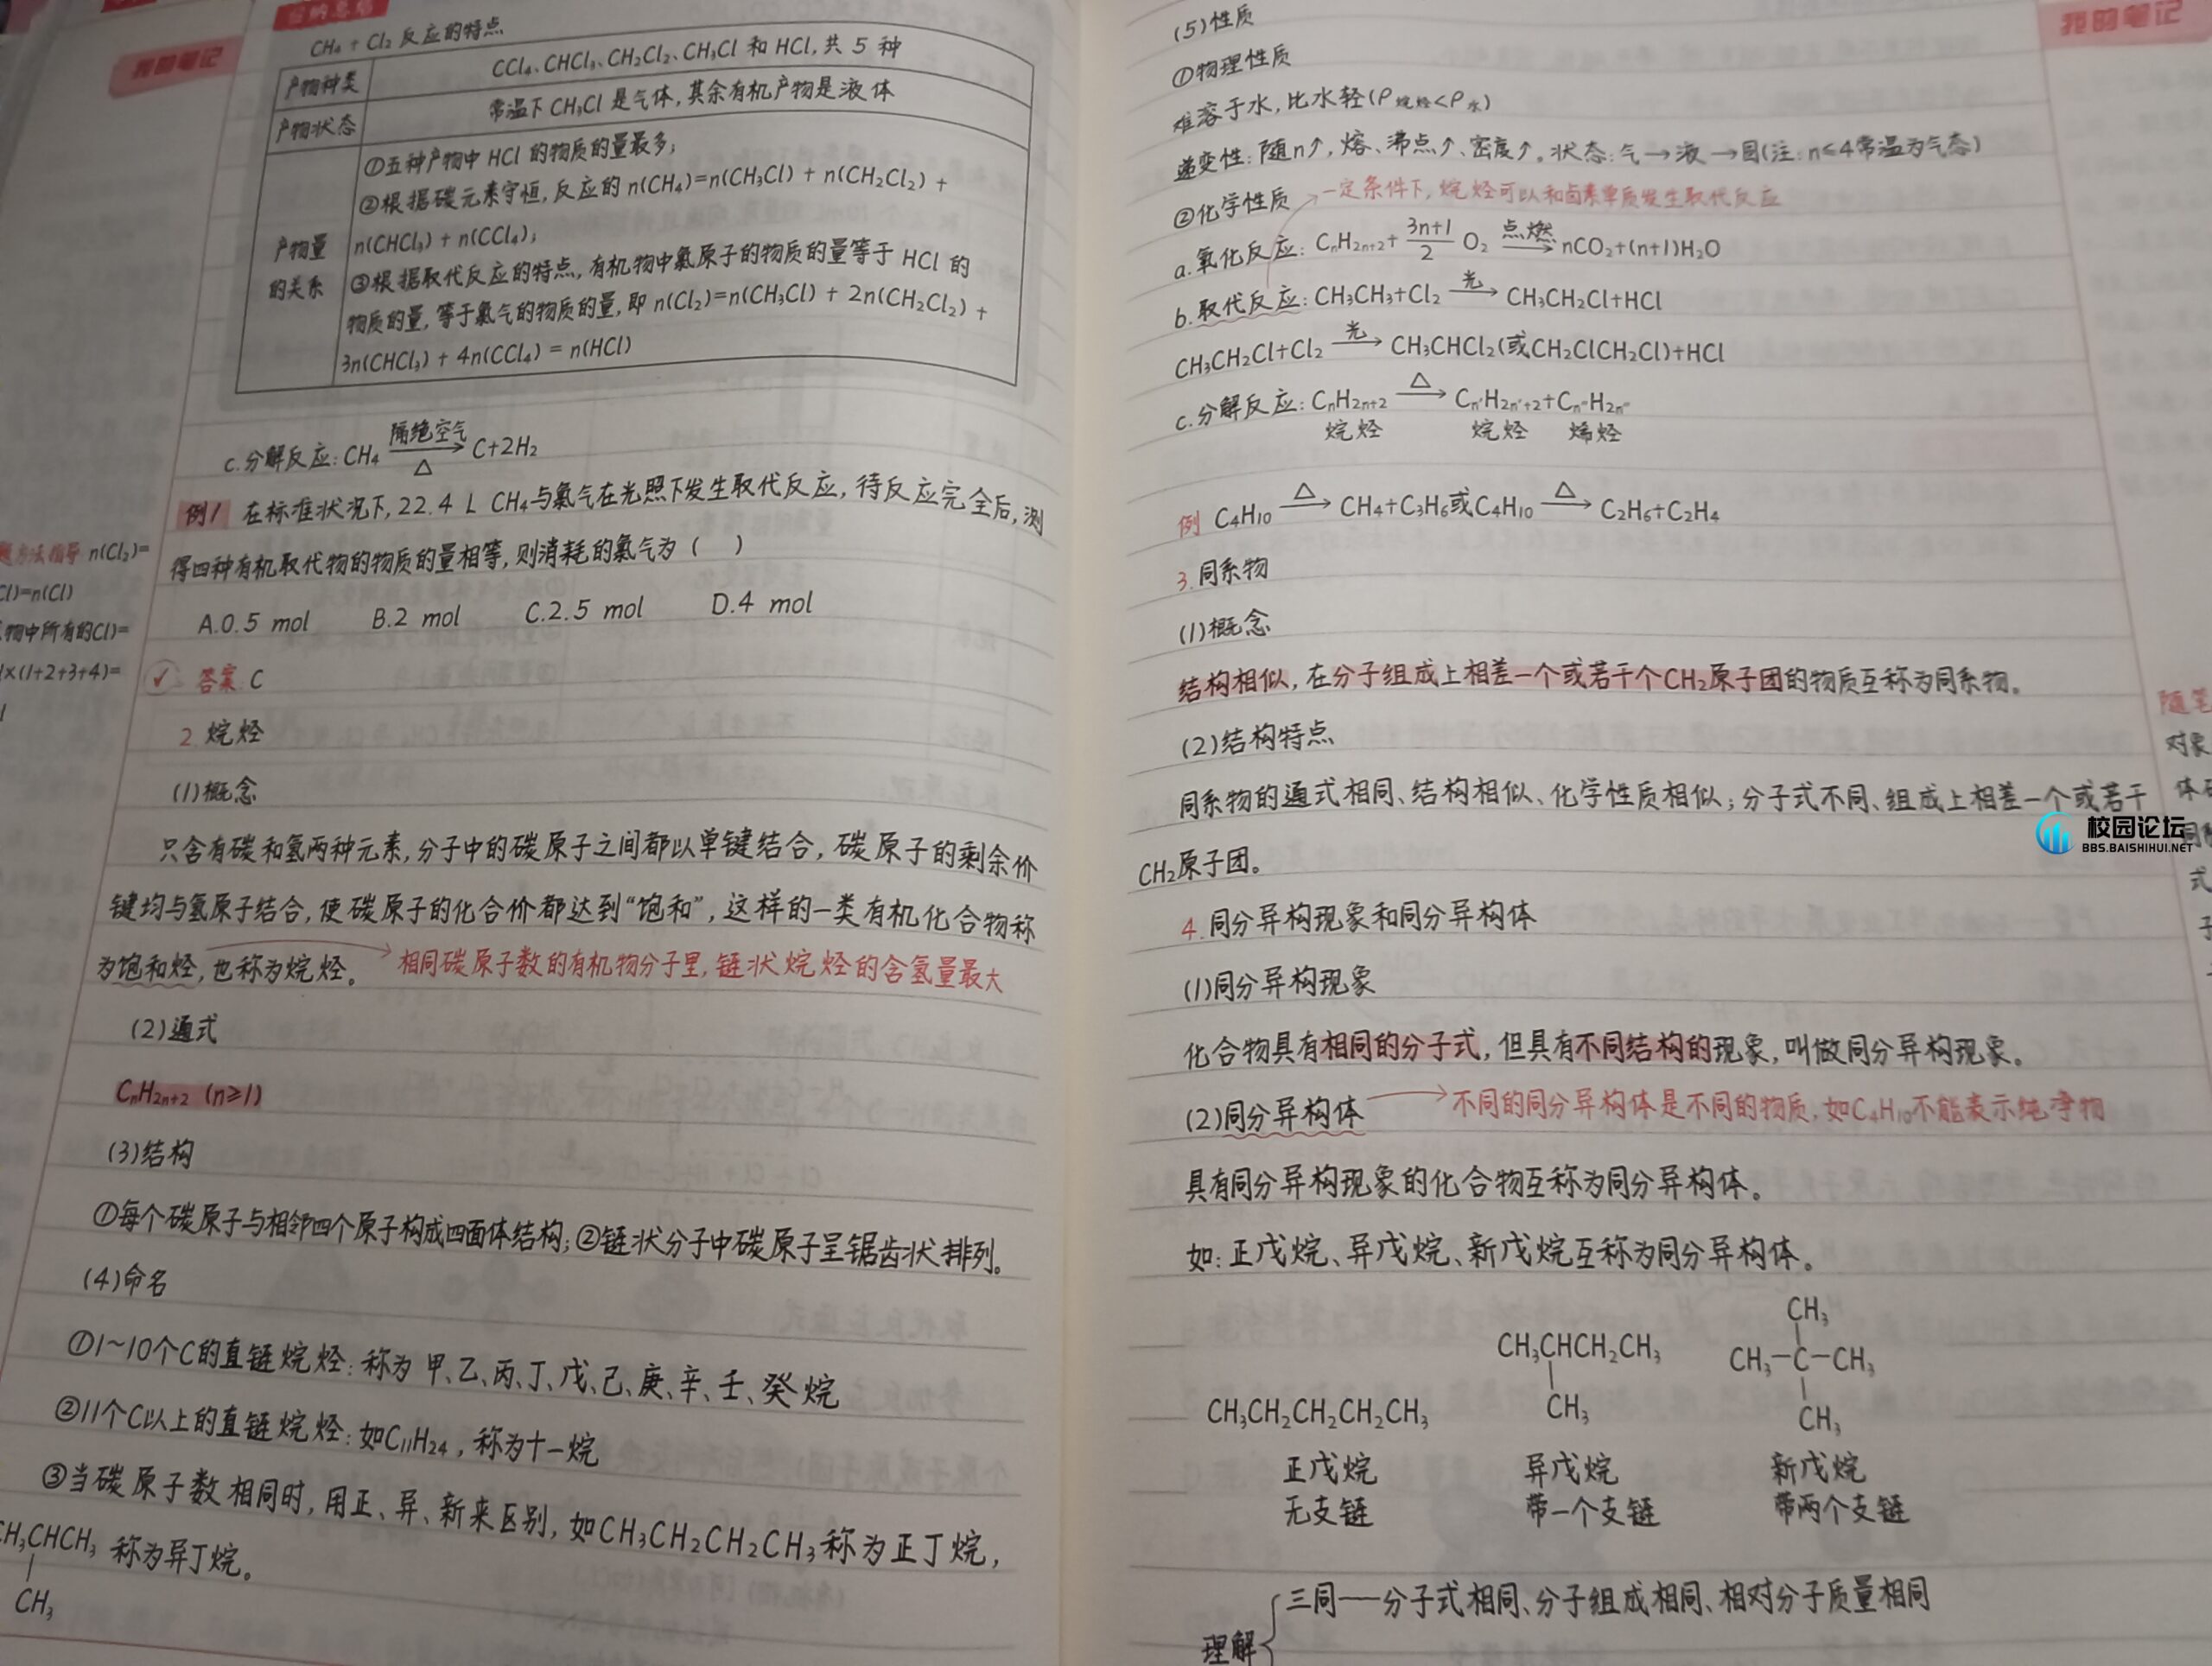 我的笔记
CH₄ + Cl₂ 反应的特点
产物种类 CCl₄、CHCl₃、CH₂Cl₂、CH₃Cl 和 HCl, 共 5 种
产物状态 常温下 CH₃Cl 是气体, 其余有机产物是液体
产物量的关系
①五种产物中 HCl 的物质的量最多;
②根据碳元素守恒, 反应的 n(CH₄)=n(CH₃Cl) + n(CH₂Cl₂) +
n(CHCl₃) + n(CCl₄);
③根据取代反应的特点, 有机物中氯原子的物质的量等于 HCl 的
物质的量, 等于氯气的物质的量, 即 n(Cl₂)=n(CH₃Cl) + 2n(CH₂Cl₂) +
3n(CHCl₃) + 4n(CCl₄) = n(HCl)
c.分解反应: CH₄ 隔绝空气→△ C+2H₂
例1 在标准状况下, 22.4 L CH₄与氯气在光照下发生取代反应, 待反应完全后, 测
得四种有机取代物的物质的量相等, 则消耗的氯气为 ( )
A.0.5 mol B.2 mol C.2.5 mol D.4 mol
答案 C
方法指导 n(Cl₂)=
Cl)=n(Cl)
物中所有的Cl)=
×(1+2+3+4)=
2.烷烃
(1)概念
只含有碳和氢两种元素, 分子中的碳原子之间都以单键结合, 碳原子的剩余价
键均与氢原子结合, 使碳原子的化合价都达到“饱和”, 这样的一类有机化合物称
为饱和烃, 也称为烷烃。 相同碳原子数的有机物分子里, 链状烷烃的含氢量最大
(2)通式
CₙH₂ₙ₊₂ (n≥1)
(3)结构
①每个碳原子与相邻四个原子构成四面体结构; ②链状分子中碳原子呈锯齿状排列。
(4)命名
①1~10个C的直链烷烃: 称为 甲、乙、丙、丁、戊、己、庚、辛、壬、癸烷
②11个C以上的直链烷烃: 如C₁₁H₂₄, 称为十一烷
③当碳原子数相同时, 用正、异、新来区别, 如CH₃CH₂CH₂CH₃称为正丁烷,
CH₃CHCH₃ 称为异丁烷。
CH₃
我的笔记
(5)性质
①物理性质
难溶于水, 比水轻(ρ烷烃<ρ水)
递变性: 随n↑, 熔、沸点↑、密度↑。状态: 气→液→固(注: n≤4常温为气态)
②化学性质 一定条件下, 烷烃可以和卤素单质发生取代反应
a.氧化反应: CₙH₂ₙ₊₂+ (3n+1)/2 O₂ 点燃→ nCO₂+(n+1)H₂O
b.取代反应: CH₃CH₃+Cl₂ 光→ CH₃CH₂Cl+HCl
CH₃CH₂Cl+Cl₂ 光→ CH₃CHCl₂(或CH₂ClCH₂Cl)+HCl
c.分解反应: CₙH₂ₙ₊₂ △→ Cₙ'H₂ₙ'₊₂+Cₙ''H₂ₙ''
烷烃 烷烃 烯烃
例 C₄H₁₀ △→ CH₄+C₃H₆或C₄H₁₀ △→ C₂H₆+C₂H₄
3.同系物
(1)概念
结构相似, 在分子组成上相差一个或若干个CH₂原子团的物质互称为同系物。
(2)结构特点
同系物的通式相同、结构相似、化学性质相似; 分子式不同、组成上相差一个或若干
CH₂原子团。
校园论坛
BBS.BAISHIHUI.NET
随笔
对象
4.同分异构现象和同分异构体
(1)同分异构现象
化合物具有相同的分子式, 但具有不同结构的现象, 叫做同分异构现象。
(2)同分异构体 不同的同分异构体是不同的物质, 如C₄H₁₀不能表示纯净物
具有同分异构现象的化合物互称为同分异构体。
如: 正戊烷、异戊烷、新戊烷互称为同分异构体。
CH₃
CH₃CHCH₂CH₃ CH₃-C-CH₃
CH₃CH₂CH₂CH₂CH₃ CH₃ CH₃
正戊烷 异戊烷 新戊烷
无支链 带一个支链 带两个支链
三同——分子式相同、分子组成相同、相对分子质量相同
理解